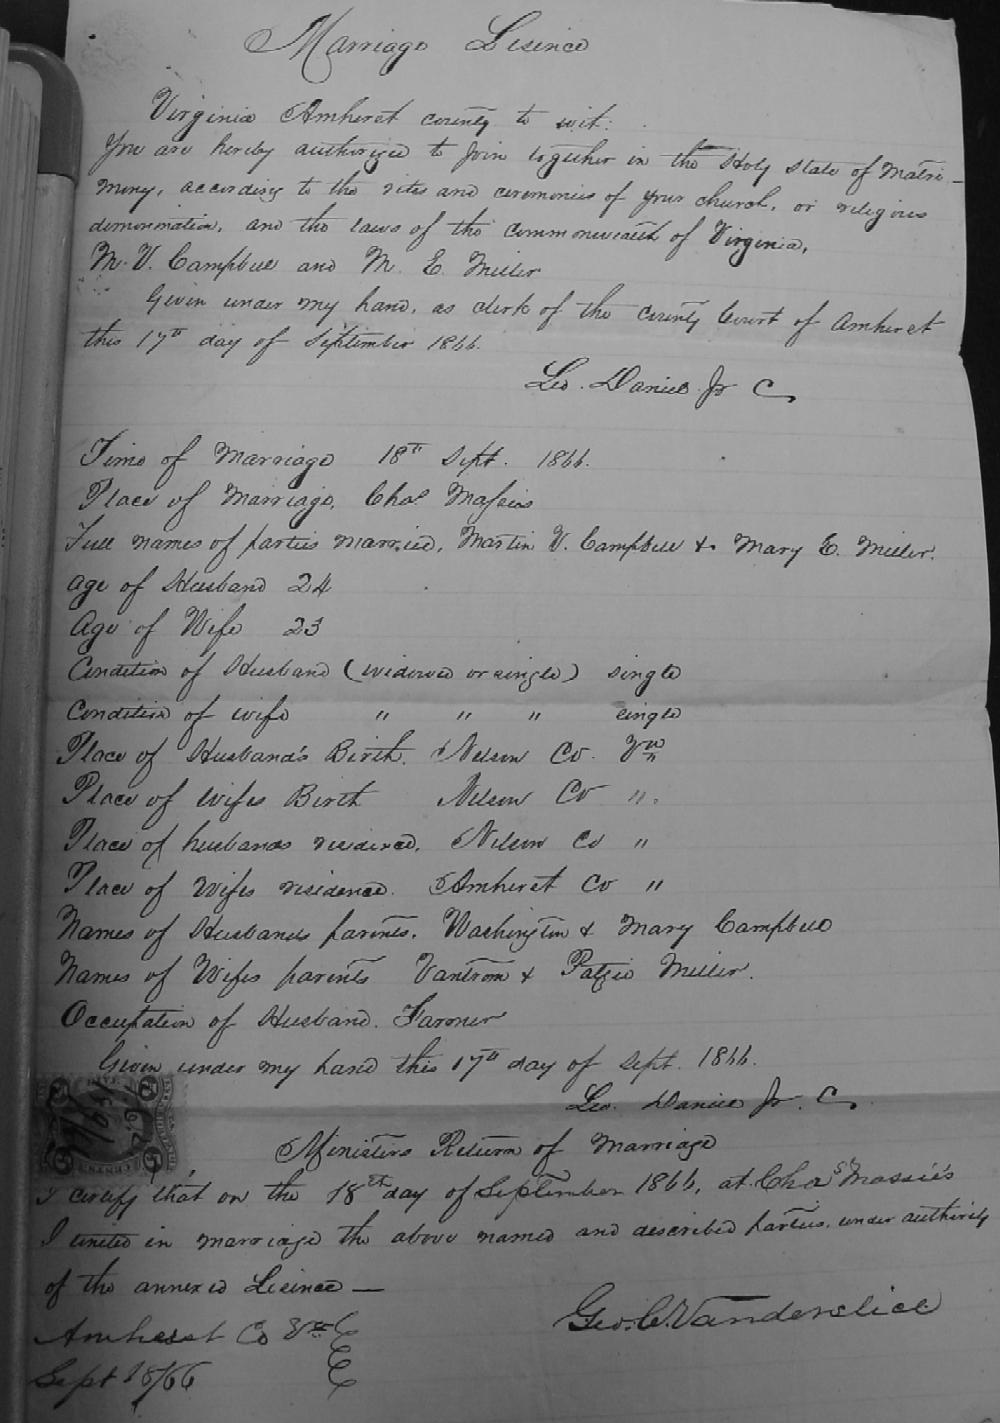 Marriage Lisence
Virginia Amherst county to wit:
You are hereby authorized to join together in the Holy State of Matri-
mony, according to the rites and ceremonies of your church, or religious
denomination, and the laws of the commonwealth of Virginia,
M. V. Campbell and M. E. Miller
Given under my hand, as clerk of the county Court of Amherst
this 17th day of September 1866.
Leo. Daniel Jr C
Time of Marriage 18th Sept. 1866.
Place of Marriage, Chas Massies
Full names of parties married, Martin V. Campbell & Mary E. Miller.
age of Husband 24
Age of Wife 23
Condition of Husband (widowed or single) single
Condition of wife " " " single
Place of Husband's Birth. Nelson Co. Va
Place of wifes Birth Nelson Co ".
Place of husbands residence, Nelson Co "
Place of Wifes residence. Amherst Co "
Names of Husbands parents. Washington & Mary Campbell
Names of Wifes parents Vantrom & Patzie Miller.
Occupation of Husband. Farmer
Given under my hand this 17th day of Sept. 1866.
Leo. Daniel Jr. C
Ministers Return of Marriage
I certify that on the 18th day of September 1866, at Chas Massie's
I united in marriage the above named and described parties, under authority
of the annexed Lisence —
Geo. C. Vanderslice
Amherst Co Va
Sept 18/66